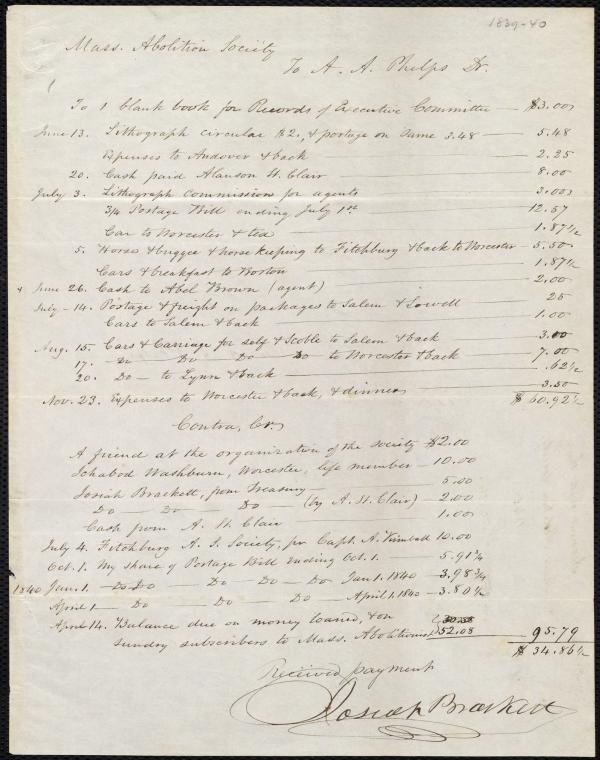 1839-40
Mass. Abolition Society
To A. A. Phelps Dr.
To 1 blank book for Records of Executive Committee — $3.00
June 13. Lithograph circular $2., & postage on same 3.48 — 5.48
Expenses to Andover & back — 2.25
20. Cash paid Alanson St. Clair — 8.00
July 3. Lithograph Commissions for agents — 3.00
3/4 Postage Bill ending July 1st — 12.57
Car to Worcester & tea — 1.87 1/2
5. Horse & buggee & horse keeping to Fitchburg & back to Worcester — 5.50
Cars & breakfast to Boston — 1.87 1/2
June 26. Cash to Abel Brown (agent) — 2.00
July 14. Postage & freight on packages to Salem & Lowell — 25
Cars to Salem & back — 1.00
Aug. 15. Cars & Carriage for self & Scoble to Salem & back — 3.00
17. Do Do Do Do to Worcester & back — 7.00
20. Do — to Lynn & back — .62 1/2
Nov. 23. Expenses to Worcester & back, & dinner — 3.50
$ 60.92 1/2
Contra, Cr.
A friend at the organization of the society $2.00
Ichabod Washburn, Worcester, life member — 10.00
Josiah Brackett, from Treasury — 5.00
Do — Do — Do — (by A. St. Clair) — 2.00
Cash from A. St. Clair — 1.00
July 4. Fitchburg A. S. Society, pr Capt. A. Kimball 10.00
Oct. 1. My share of Postage Bill ending Oct. 1. — 5.91 1/4
1840 Jan. 1. — Do Do — Do — Do — Do Jan 1. 1840 — 3.98 3/4
April 1 — Do — Do — Do — April 1. 1840 — 3.80 1/2
April 14. Balance due on money loaned, & on
Sundry subscribers to Mass. Abolitionist 52.08 — 95.79
$ 34.86 1/2
Received payment
Josiah Brackett